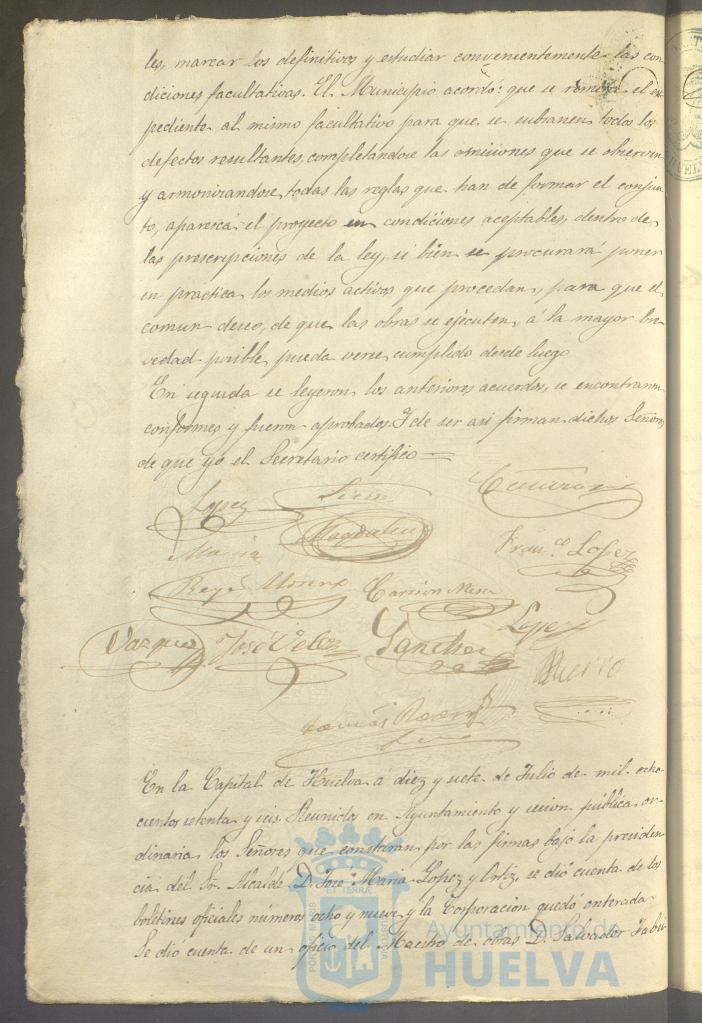 les, marcar los definitivos y estudiar convenientemente las con
diciones facultativas. El Municipio acordó: que se remita el ex
pediente al mismo facultativo para que se subsanen todos los
defectos resultantes, completandose las omisiones que se observen
y armonizandose todas las reglas que han de formar el conjun
to, aparesca el proyecto en condiciones aceptables, dentro de
las prescripciones de la ley, si bien se procurará poner
en practica los medios activos que procedan, para que el
comun deseo, de que las obras se ejecuten, á la mayor bre
vedad posible pueda verse cumplido desde luego
En seguida se leyeron los anteriores acuerdos, se encontraron
conformes y fueron aprobados. Y de ser asi firman dichos Señores
de que yo el Secretario certifico
Lopez
Magdalena
Franco. Lopez
Maria
Reyes Moreno Carrion Mesa
Vazquez José Velez Sanchez Lopez
Tomás
En la Capital de Huelva á diez y siete de Julio de mil ocho
cientos setenta y seis. Reunidos en Ayuntamiento y sesion publica or
dinaria los Señores que constaran por las firmas bajo la presiden
cia del Sr. Alcalde D. José Maria Lopez y Ortiz, se dió cuenta de los
boletines oficiales números ocho y nueve y la Corporacion quedó enterada
Se dió cuenta de un oficio del Maestro de obras D. Salvador
PORTUS MARIS ET TERRAE CUSTODIA
Ayuntamiento de
HUELVA
HUELV